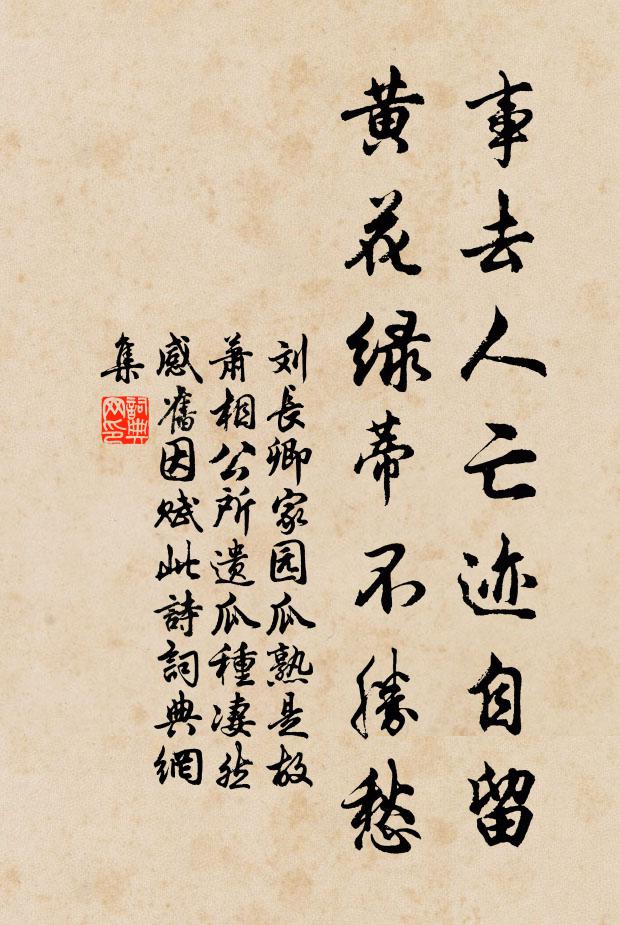 事去人亡迹自留
黄花绿蒂不勝愁
刘長卿家园瓜熟是故
萧相公所遗瓜種凄然
感舊因赋此詩詞典網
集
詞典
网印